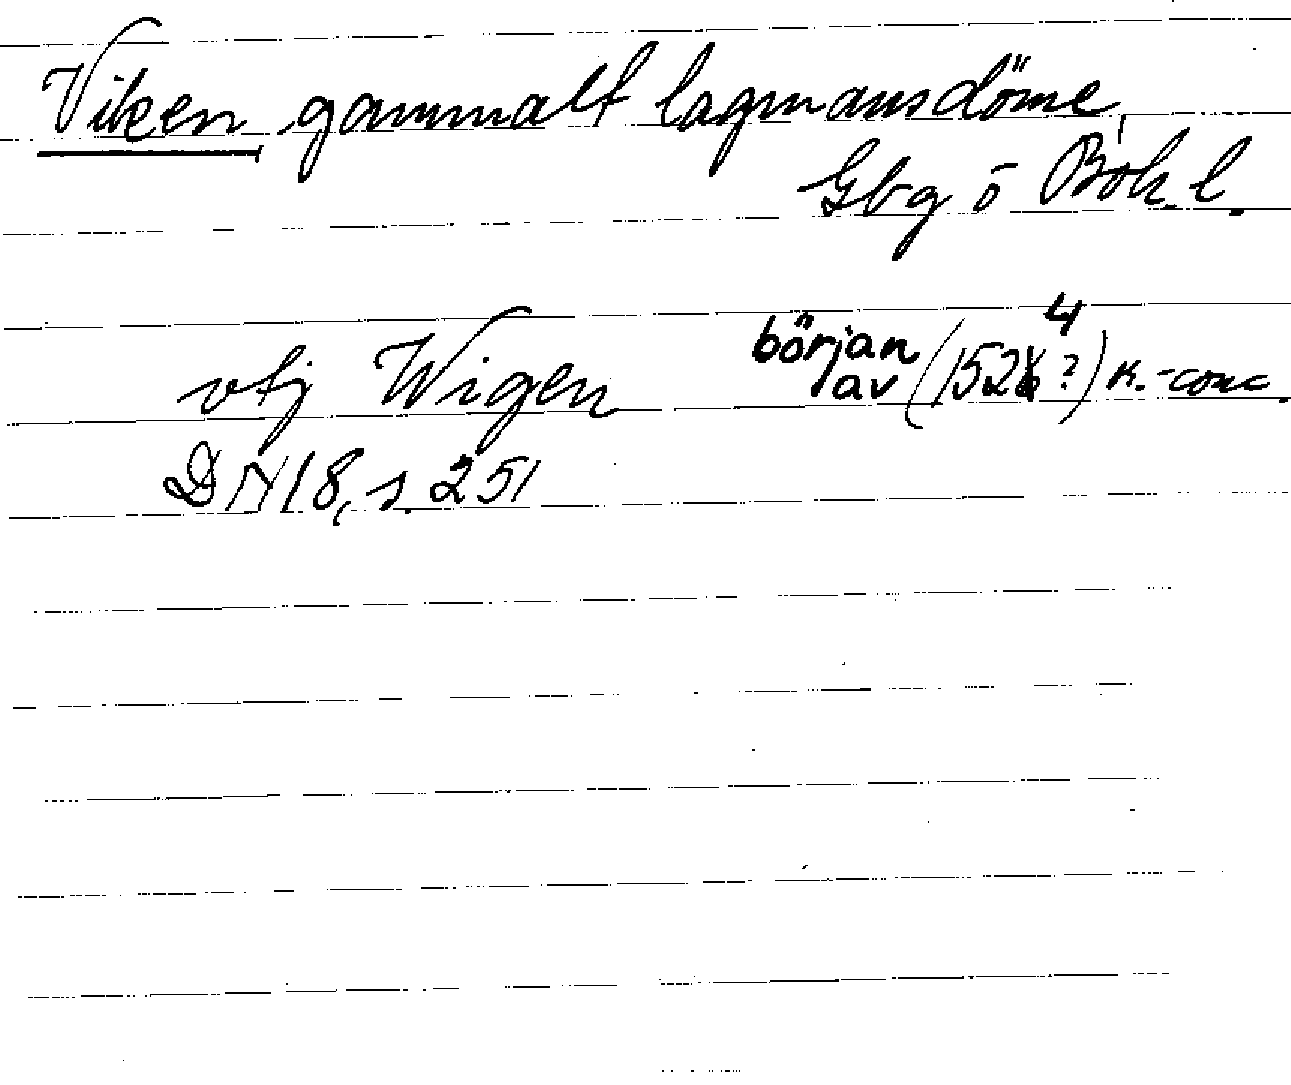 Viken gammalt lagmansdöme,
Gbg o Boh. l.
vtj Wigen början av (1524?) K.-conc.
DN 18, s. 251